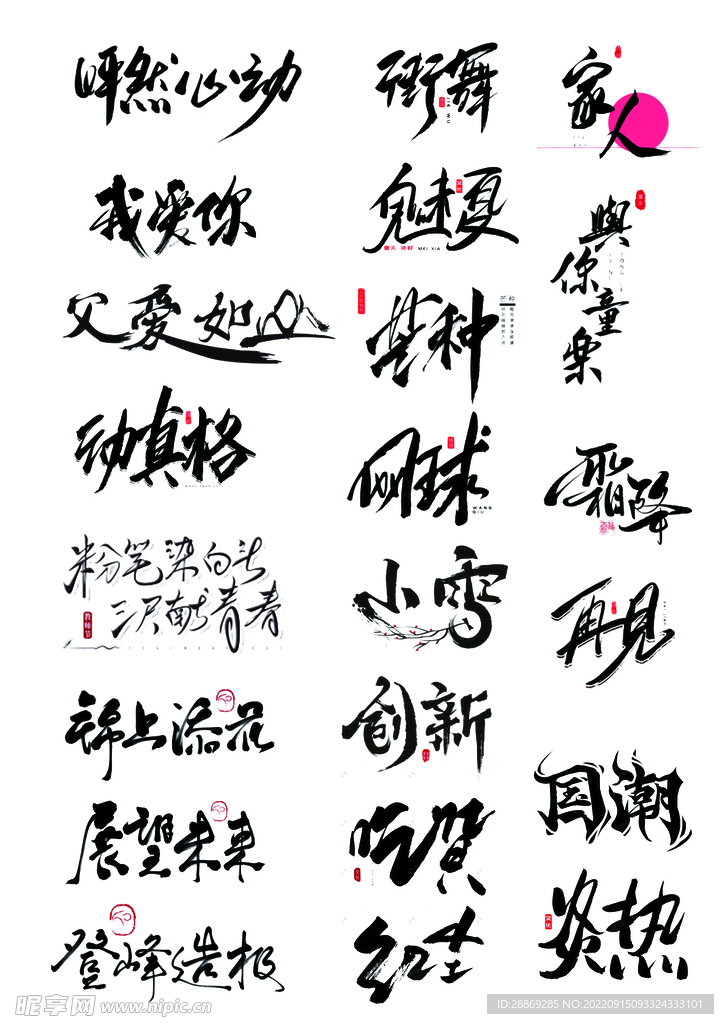 怦然心动
我爱你
父爱如山
动真格
粉笔染白头
三尺献青春
教师节
锦上添花
展望未来
登峰造极
街舞
JIE WU
魅夏
文化
夏天 你好 MEI XIA
芒种
芒种
网球
WANG
QIU
小雪
创新
吃货
红尘
家人
與你童樂
霜降
再见
国潮
炙热
文化
昵享网 www.nipic.cn
ID:28869285 NO:20220915093324333101